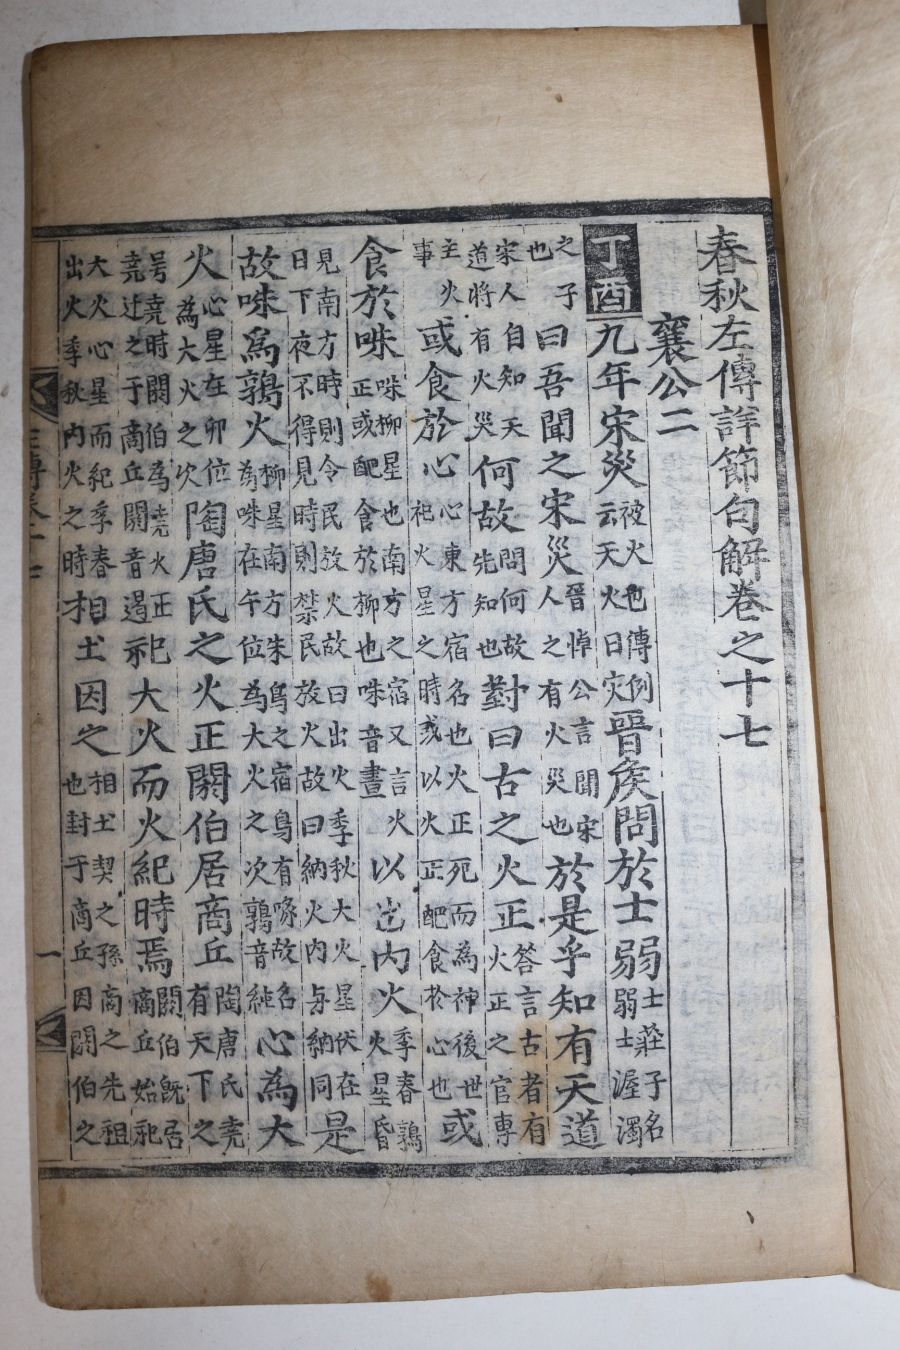 春秋左傳詳節句解卷之十七
襄公二
丁酉九年宋災被火也傳例云天火曰災晉侯問於士弱士莊子名弱士渥濁
之子也曰吾聞之宋災晉悼公言聞宋人之有火災也於是乎知有天道
宋人自知天道將有火災何故問何故先知也對曰古之火正答言古者有火正之官專
主火事或食於心心東方宿名也火正死而為神後世祀火星之時或以火正配食於心也或
食於咮咮柳星也南方之宿又言火正或配食於柳也咮音晝以出內火季春鶉火星昏
見南方時則令民放火故曰出火季秋大火星伏在日下夜不得見時則禁民放火故曰納火內与納同是
故咮爲鶉火柳星南方朱鳥之宿鳥有喙故名為咮在午位為大火之次鶉音純心為大
火心星在卯位為大火之次陶唐氏之火正閼伯居商丘陶唐氏堯有天下之
号堯時閼伯為堯火正堯迁之于商丘閼音遏祀大火而火紀時焉閼伯既居商丘始祀
大火心星而紀季春出火季秋內火之時相土因之相土契之孫商之先祖也封于商丘因閼伯之
左傳卷十七
一